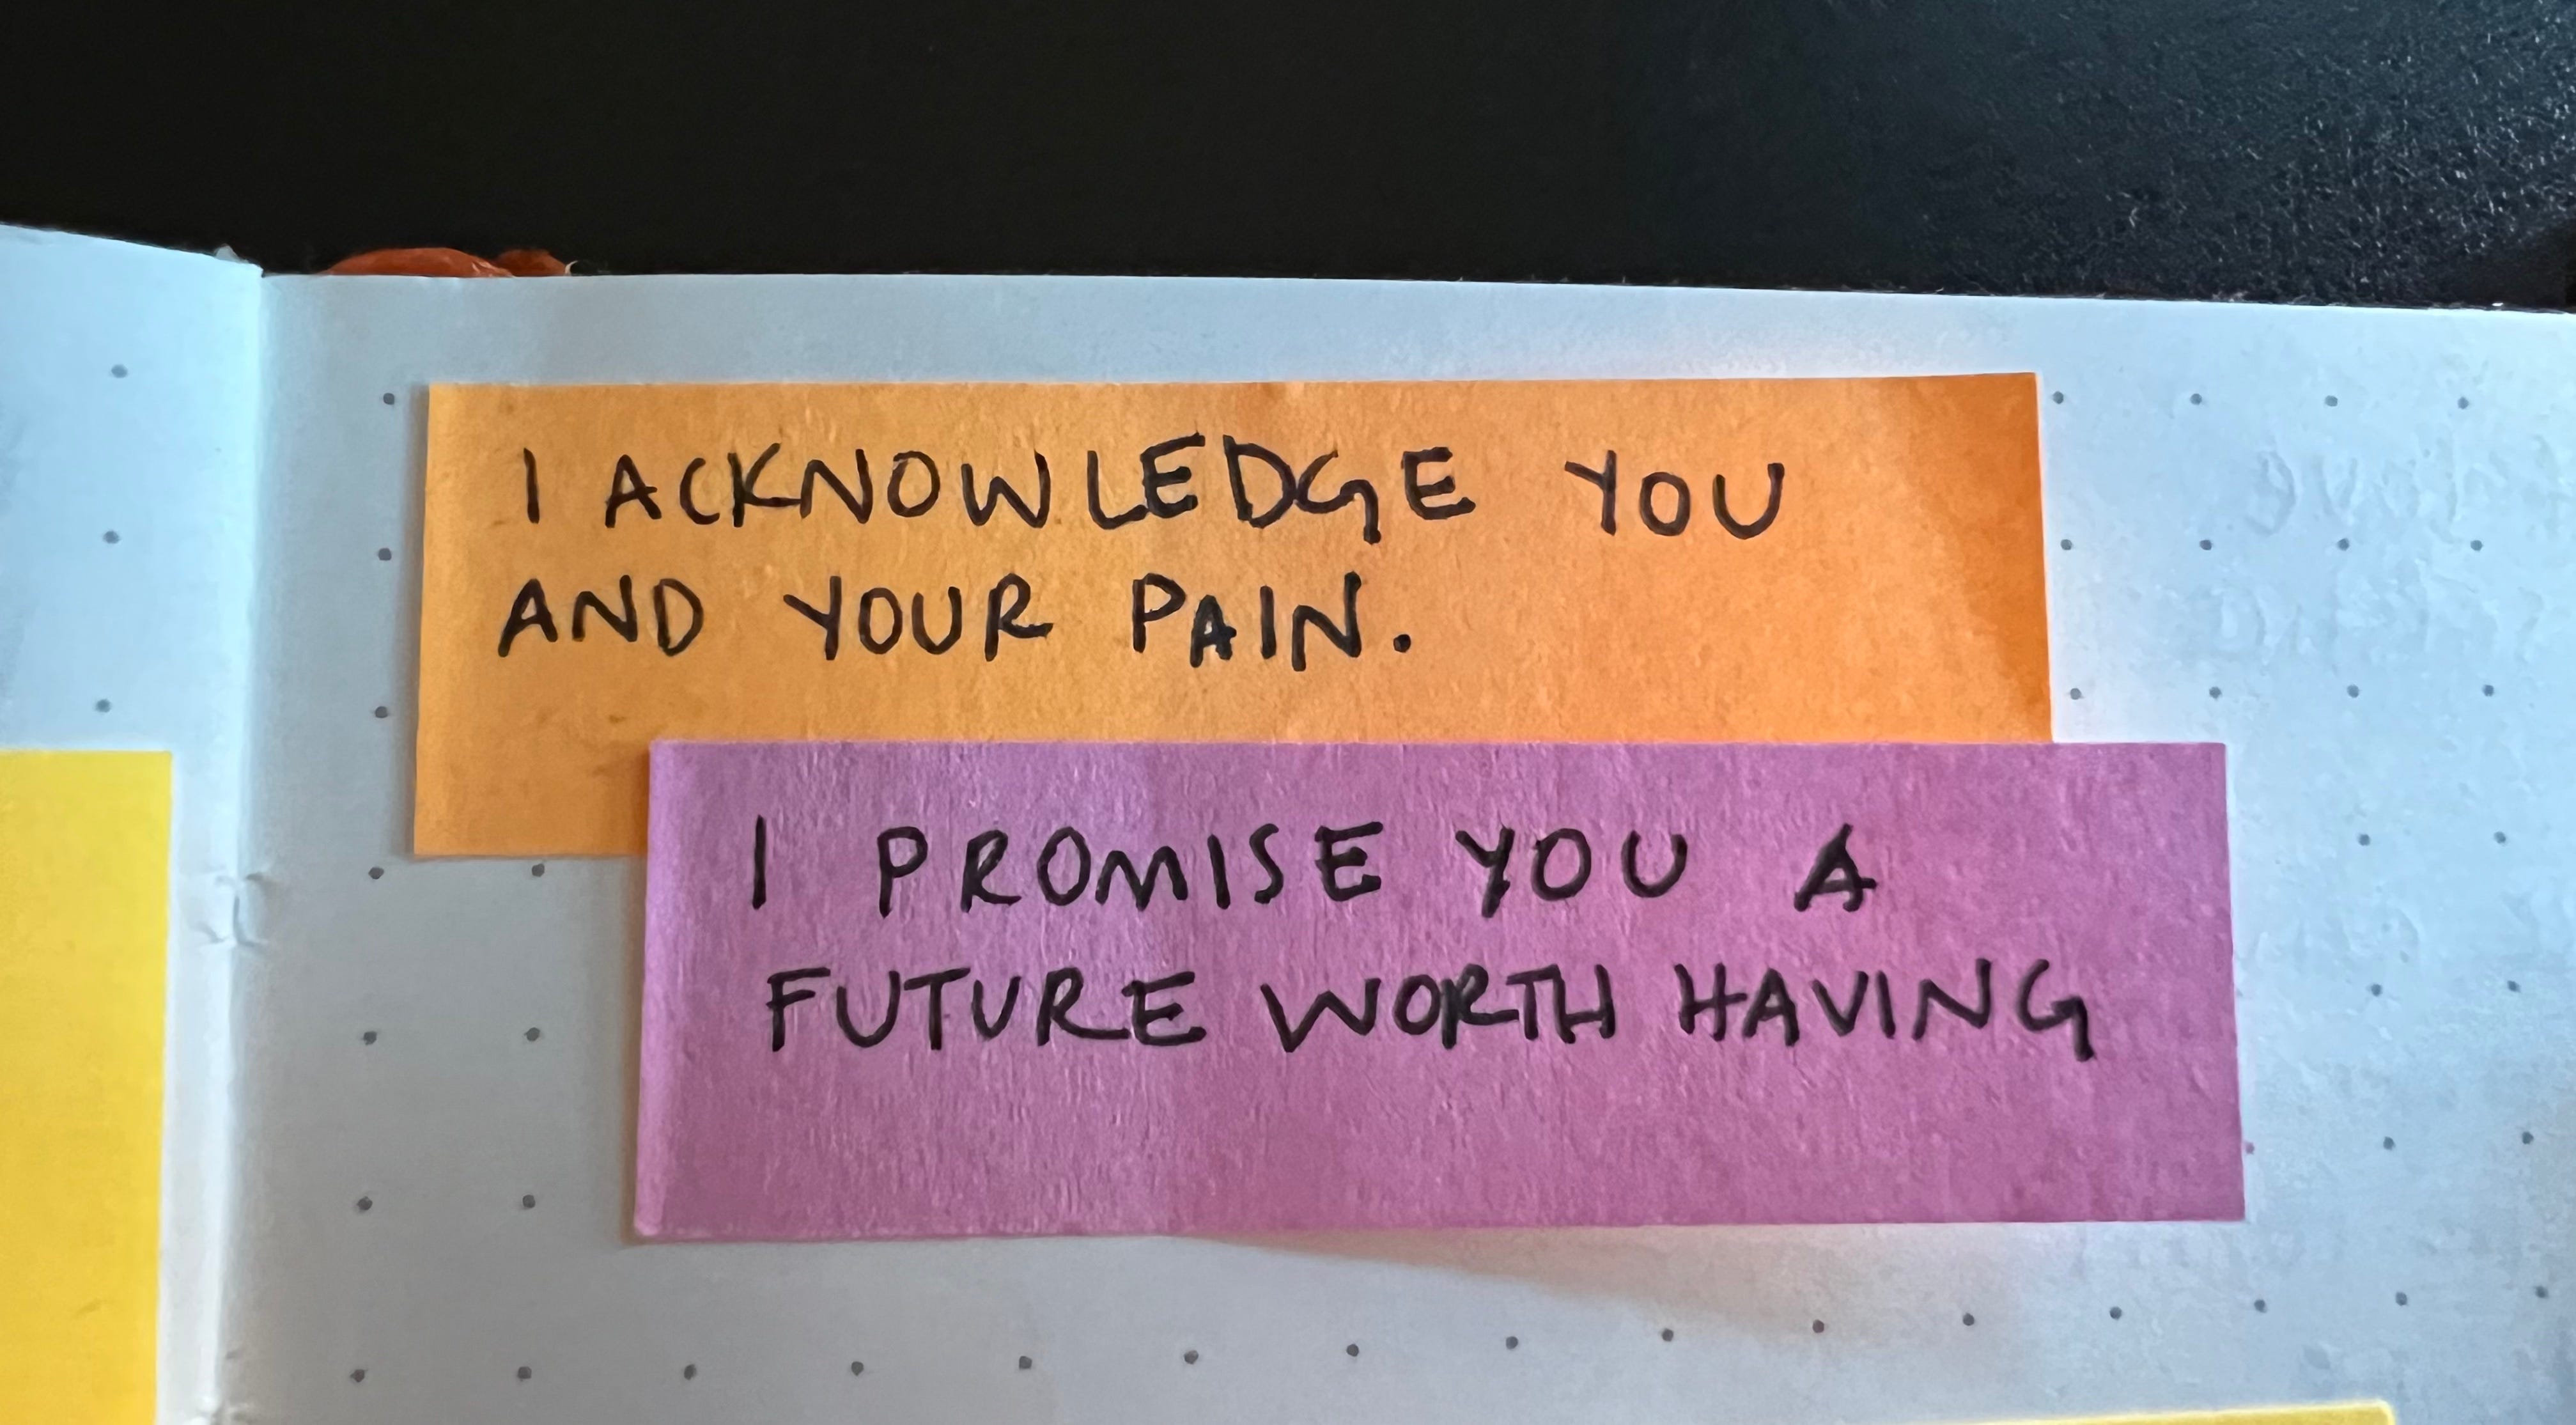 I ACKNOWLEDGE YOU
AND YOUR PAIN.
I PROMISE YOU A
FUTURE WORTH HAVING